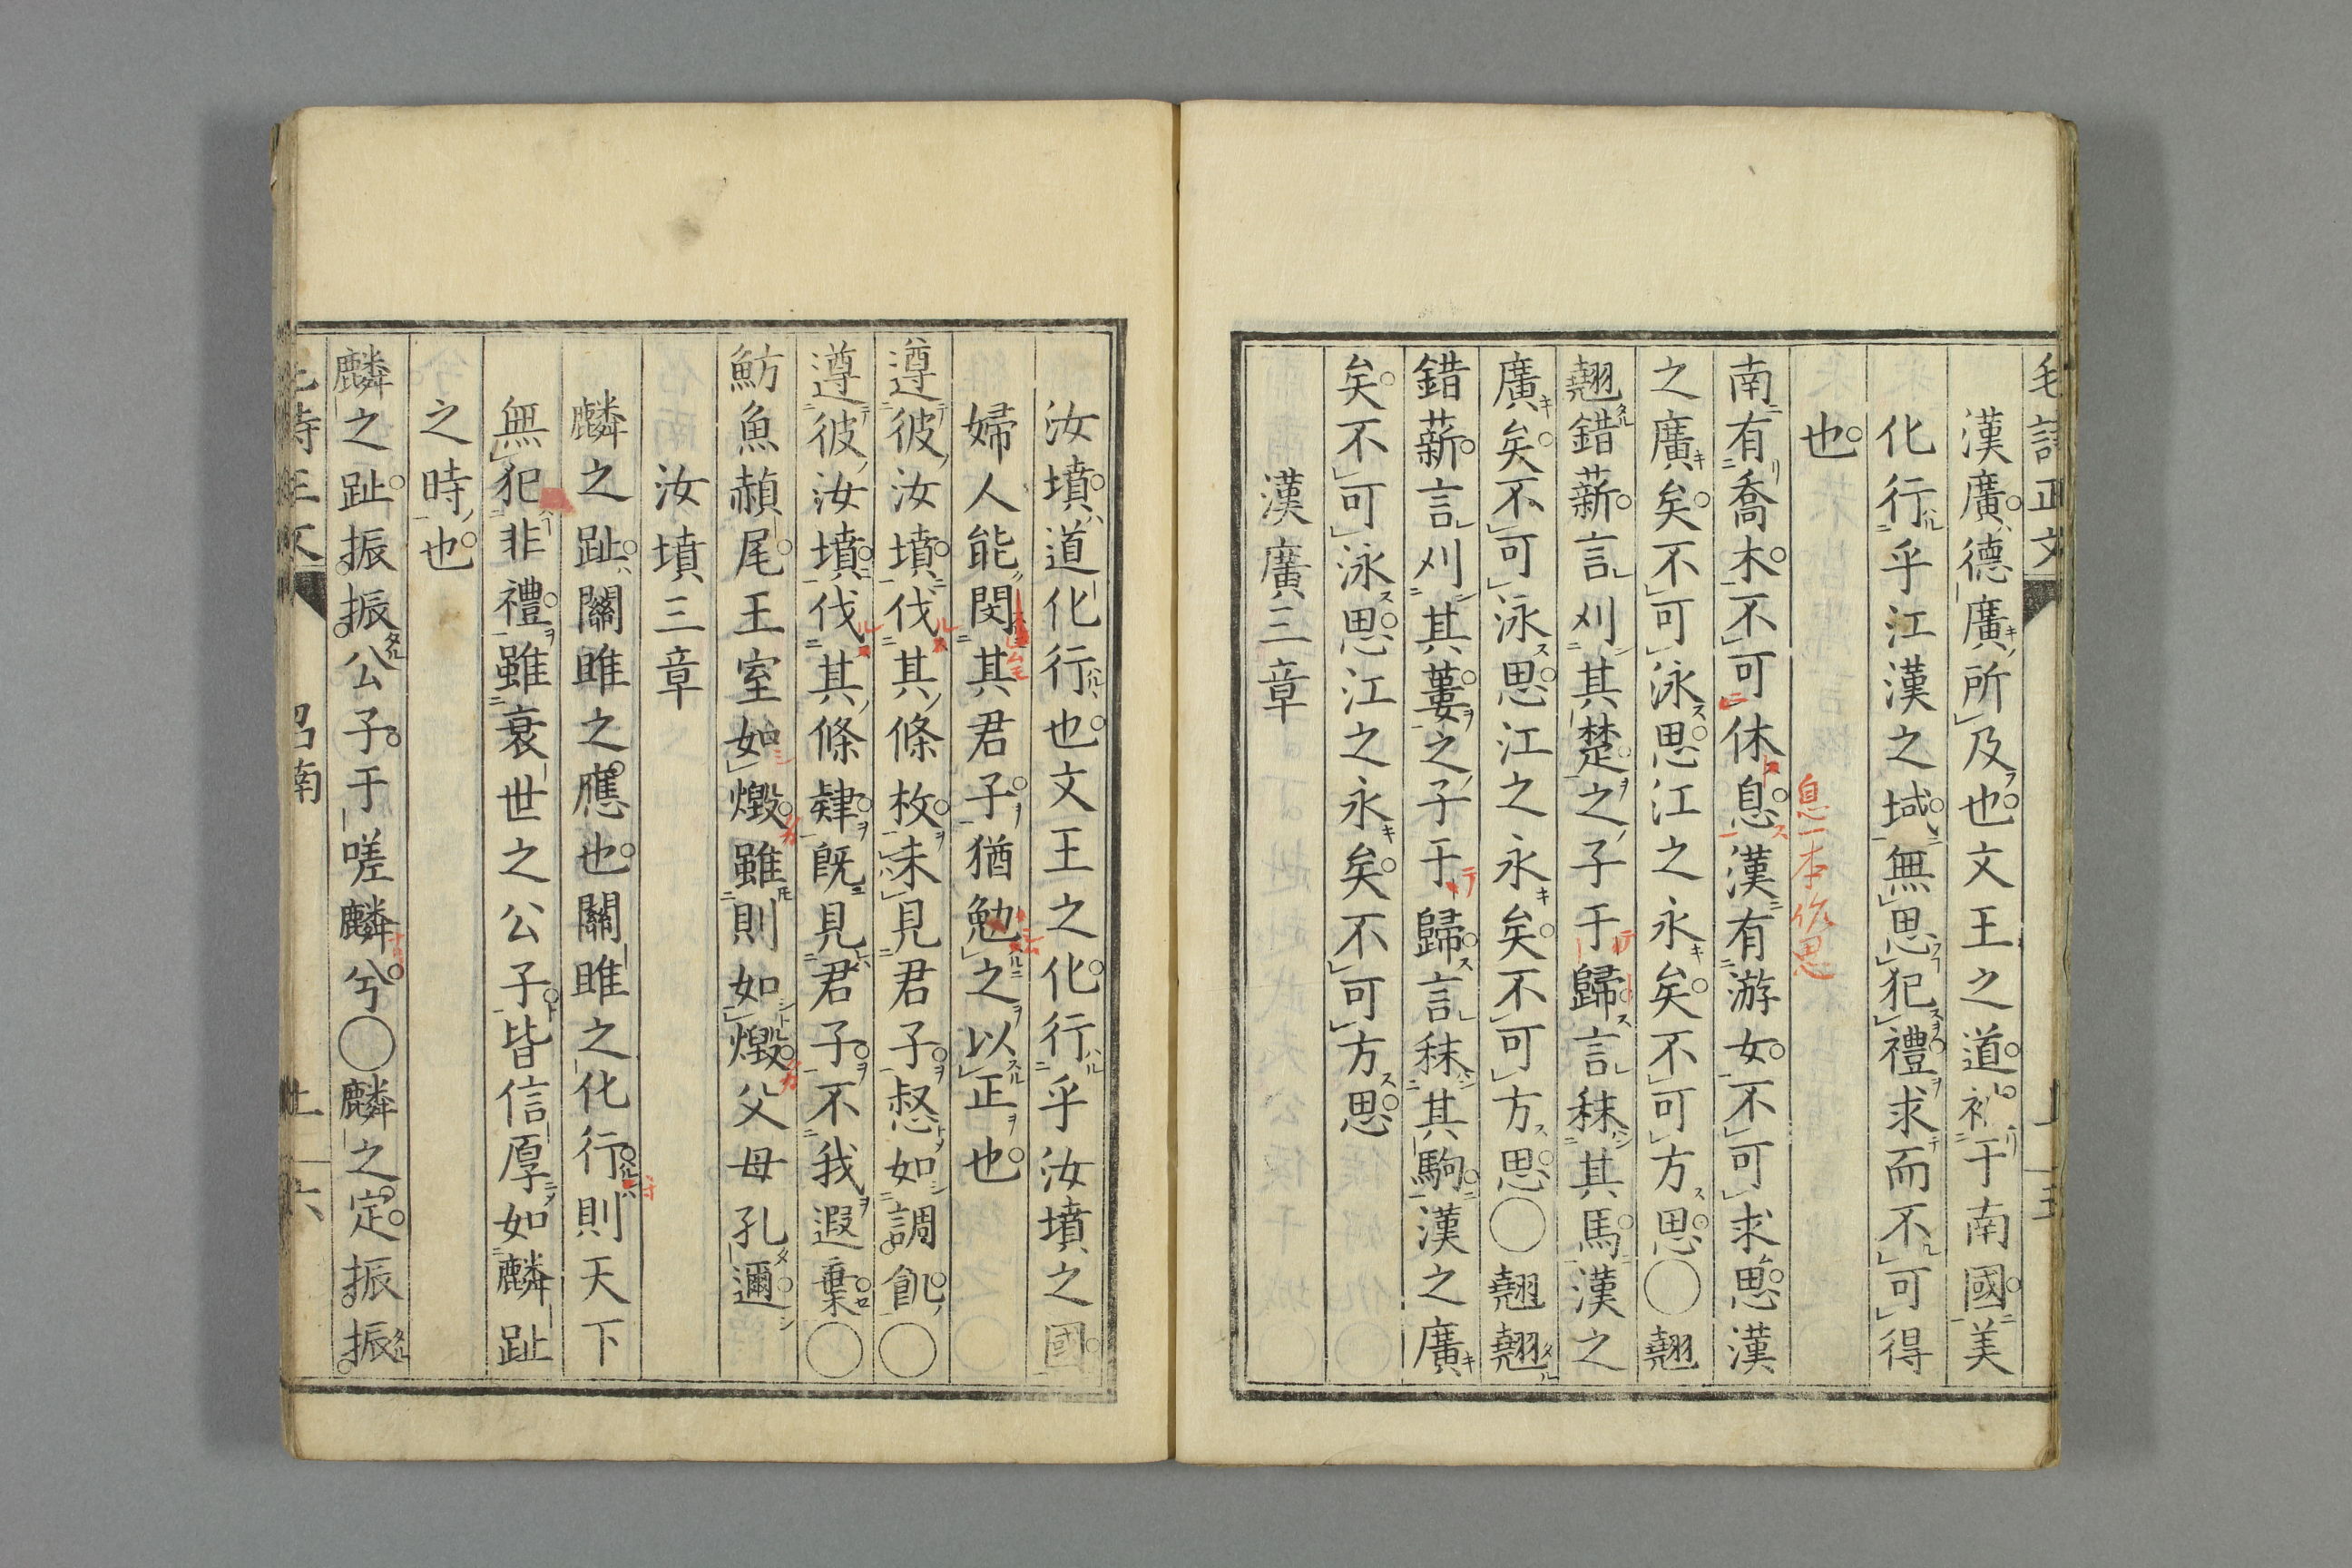 毛詩正文
漢廣德廣所及也文王之道被于南國美
化行乎江漢之域無思犯禮求而不可得
也
息一本作思
南有喬木不可休息漢有游女不可求思漢
之廣矣不可泳思江之永矣不可方思○翹
翹錯薪言刈其楚之子于歸言秣其馬漢之
廣矣不可泳思江之永矣不可方思○翹翹
錯薪言刈其蔞之子于歸言秣其駒漢之廣
矣不可泳思江之永矣不可方思
漢廣三章
汝墳道化行也文王之化行乎汝墳之國
婦人能閔其君子猶勉之以正也
遵彼汝墳伐其條枚未見君子惄如調飢○
遵彼汝墳伐其條肄既見君子不我遐棄○
魴魚赬尾王室如燬雖則如燬父母孔邇
汝墳三章
麟之趾關雎之應也關雎之化行則天下
無犯非禮雖衰世之公子皆信厚如麟趾
之時也
麟之趾振振公子于嗟麟兮○麟之定振振
毛詩正文 召南 上 六